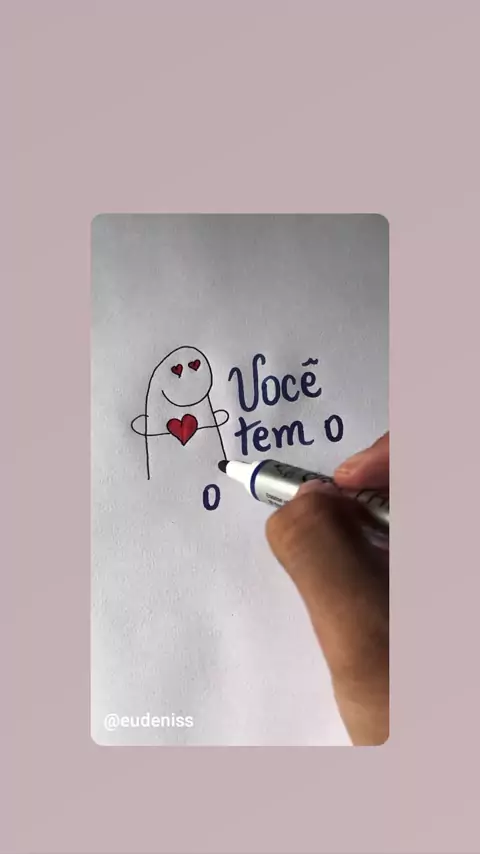 Você
tem o
o
@eudeniss